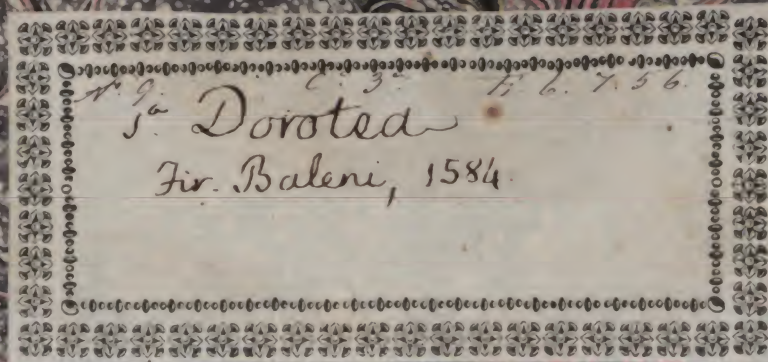 N. 9. C. 3.a E. 6. 7. 5 6.
S.a Dorotea
Fir. Baleni, 1584.